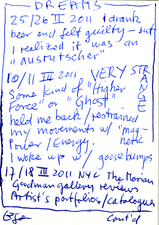 DREAMS
25/26 III 2011 I drank
beer and felt guilty - but
I realized it was an
"ausrutscher"
10/11 III 2011, VERY STRANGE
Some kind of "Higher
Force" or "Ghost"
held me back/restrained
my movements w/ "magnetic
Power/Energy.
I woke up w/ goosebumps
17/18 III 2011 NYC The Marian
Goodman gallery reviews
Artist's portfolios/catalogues
Cont'd